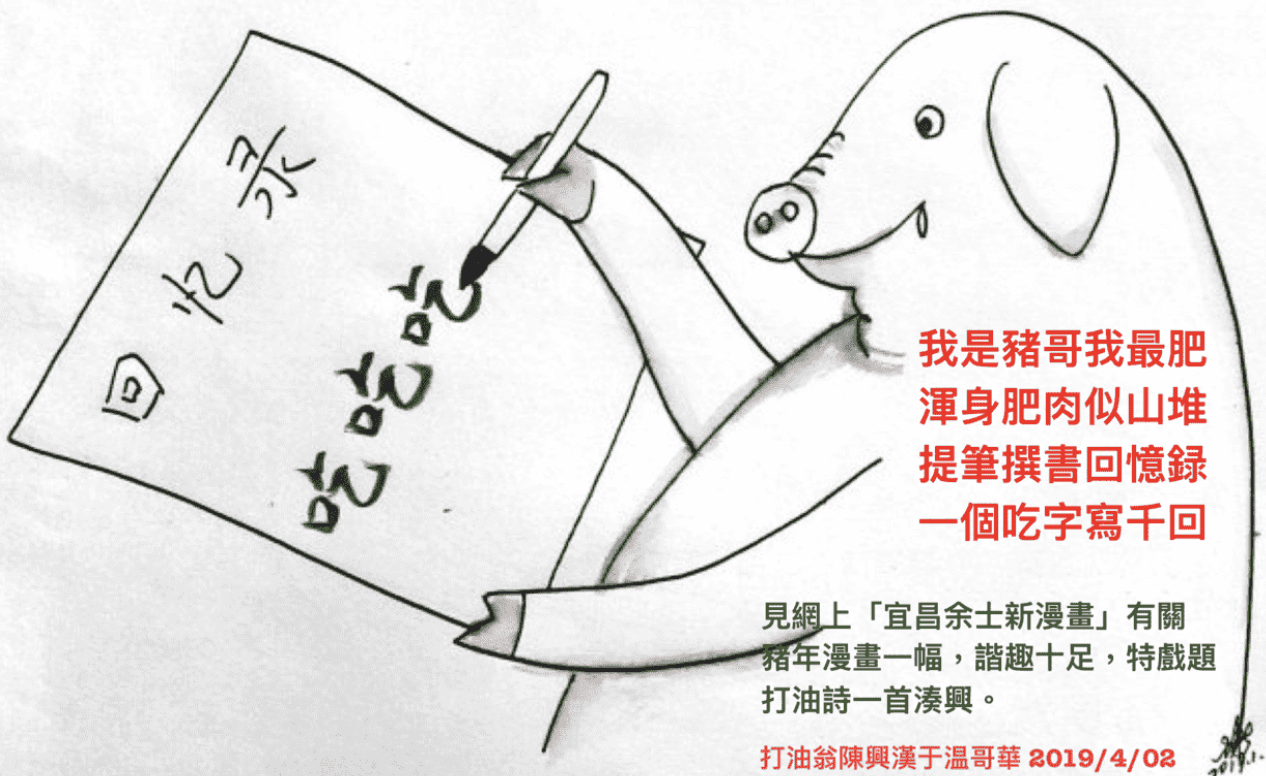 回忆录
吃吃吃
我是豬哥我最肥
渾身肥肉似山堆
提筆撰書回憶録
一個吃字寫千回
見網上「宜昌余士新漫畫」有關
豬年漫畫一幅，諧趣十足，特戲題
打油詩一首湊興。
打油翁陳興漢于温哥華 2019/4/02